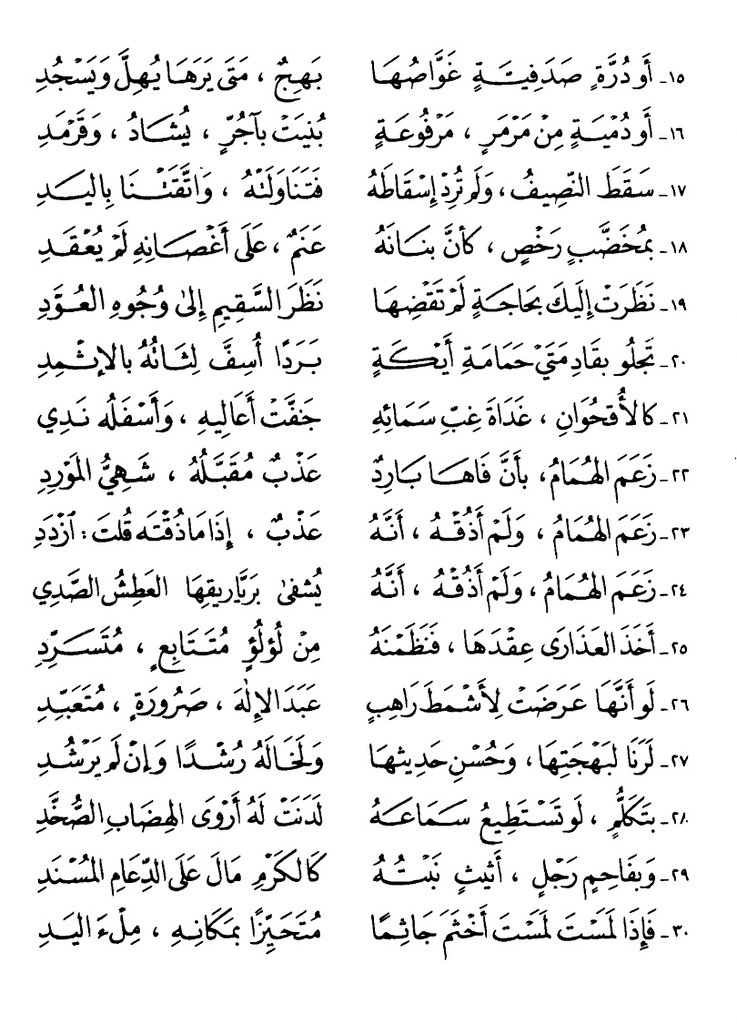 ١٥- أَو دُرَّةٍ صَدَفِيَّةٍ غَوَّاصُهَا بَهِجٌ ، مَتَى يَرَهَا يُهِلَّ وَيَسْجُدِ
١٦- أَو دُمْيَةٍ مِنْ مَرْمَرٍ ، مَرْفُوعَةٍ بُنِيَتْ بآجُرٍّ ، يُشَادُ ، وَقَرْمَدِ
١٧- سَقَطَ النَّصِيفُ ، وَلَم تُرِدْ إِسْقَاطَهُ فَتَنَاوَلَتْهُ ، وَاتَّقَتْنَا بِاليَدِ
١٨- بمُخَضَّبٍ رَخْصٍ ، كَأنَّ بنَانَهُ عَنَمٌ ، عَلَى أَغْصَانِهِ لَمْ يُعْقَدِ
١٩- نَظَرَتْ إِلَيكَ بحَاجَةٍ لَمْ تَقْضِهَا نَظَرَ السَّقِيمِ إِلىٰ وُجُوهِ العُوَّدِ
٢٠- تَجلُو بقَادِمَتَيْ حَمَامَةِ أَيْكَةٍ بَرَدًا أُسِفَّ لِثَاتُهُ بالإثمِدِ
٢١- كالأُقحُوَانِ ، غَدَاةَ غِبِّ سَمَائِهِ جَفَّتْ أَعَالِيهِ ، وَأَسْفَلُه نَدِي
٢٢- زَعَمَ الهُمَامُ ، بأَنَّ فَاهَا بَارِدٌ عَذْبٌ مُقَبَّلُهُ ، شَهِيُّ المَوْرِدِ
٢٣- زَعَمَ الهُمَامُ ، وَلَمْ أَذُقْهُ ، أَنَّهُ عَذْبٌ ، إِذَا مَا ذُقْتَه قُلتَ : ٱزْدَدِ
٢٤- زَعَمَ الهُمَامُ ، وَلَمْ أَذُقْهُ ، أَنَّهُ يُشفىٰ برَيَّا رِيقِهَا العَطِشُ الصَّدِي
٢٥- أَخَذَ العَذَارَى عِقْدَهَا ، فَنَظَمْنَهُ مِنْ لُؤلُؤٍ مُتَتَابِعٍ ، مُتَسَرِّدِ
٢٦- لَو أَنَّهَا عَرَضَتْ لِأَشْمَطَ رَاهِبٍ عَبَدَ الإِلٰهَ ، صَرُورَةٍ ، مُتَعَبِّدِ
٢٧- لَرَنَا لبَهْجَتِهَا ، وَحُسْنِ حَدِيثهَا وَلَخَالَهُ رُشْدًا وَإنْ لَم يَرْشُدِ
٢٨- بتَكَلُّمٍ ، لَو تَسْتَطِيعُ سَمَاعَهُ لَدَنَتْ لَهُ أَرْوَى الهِضَابِ الصُّخَّدِ
٢٩- وَبفَاحِمٍ رَجْلٍ ، أَثِيثٍ نَبْتُهُ كَالكَرْمِ مَالَ عَلَى الدِّعَامِ المُسْنَدِ
٣٠- فَإِذَا لَمَسْتَ لَمَسْتَ أَخْثَمَ جَاثِمًا مُتَحَيِّزًا بمَكَانِهِ ، مِلْءَ اليَدِ